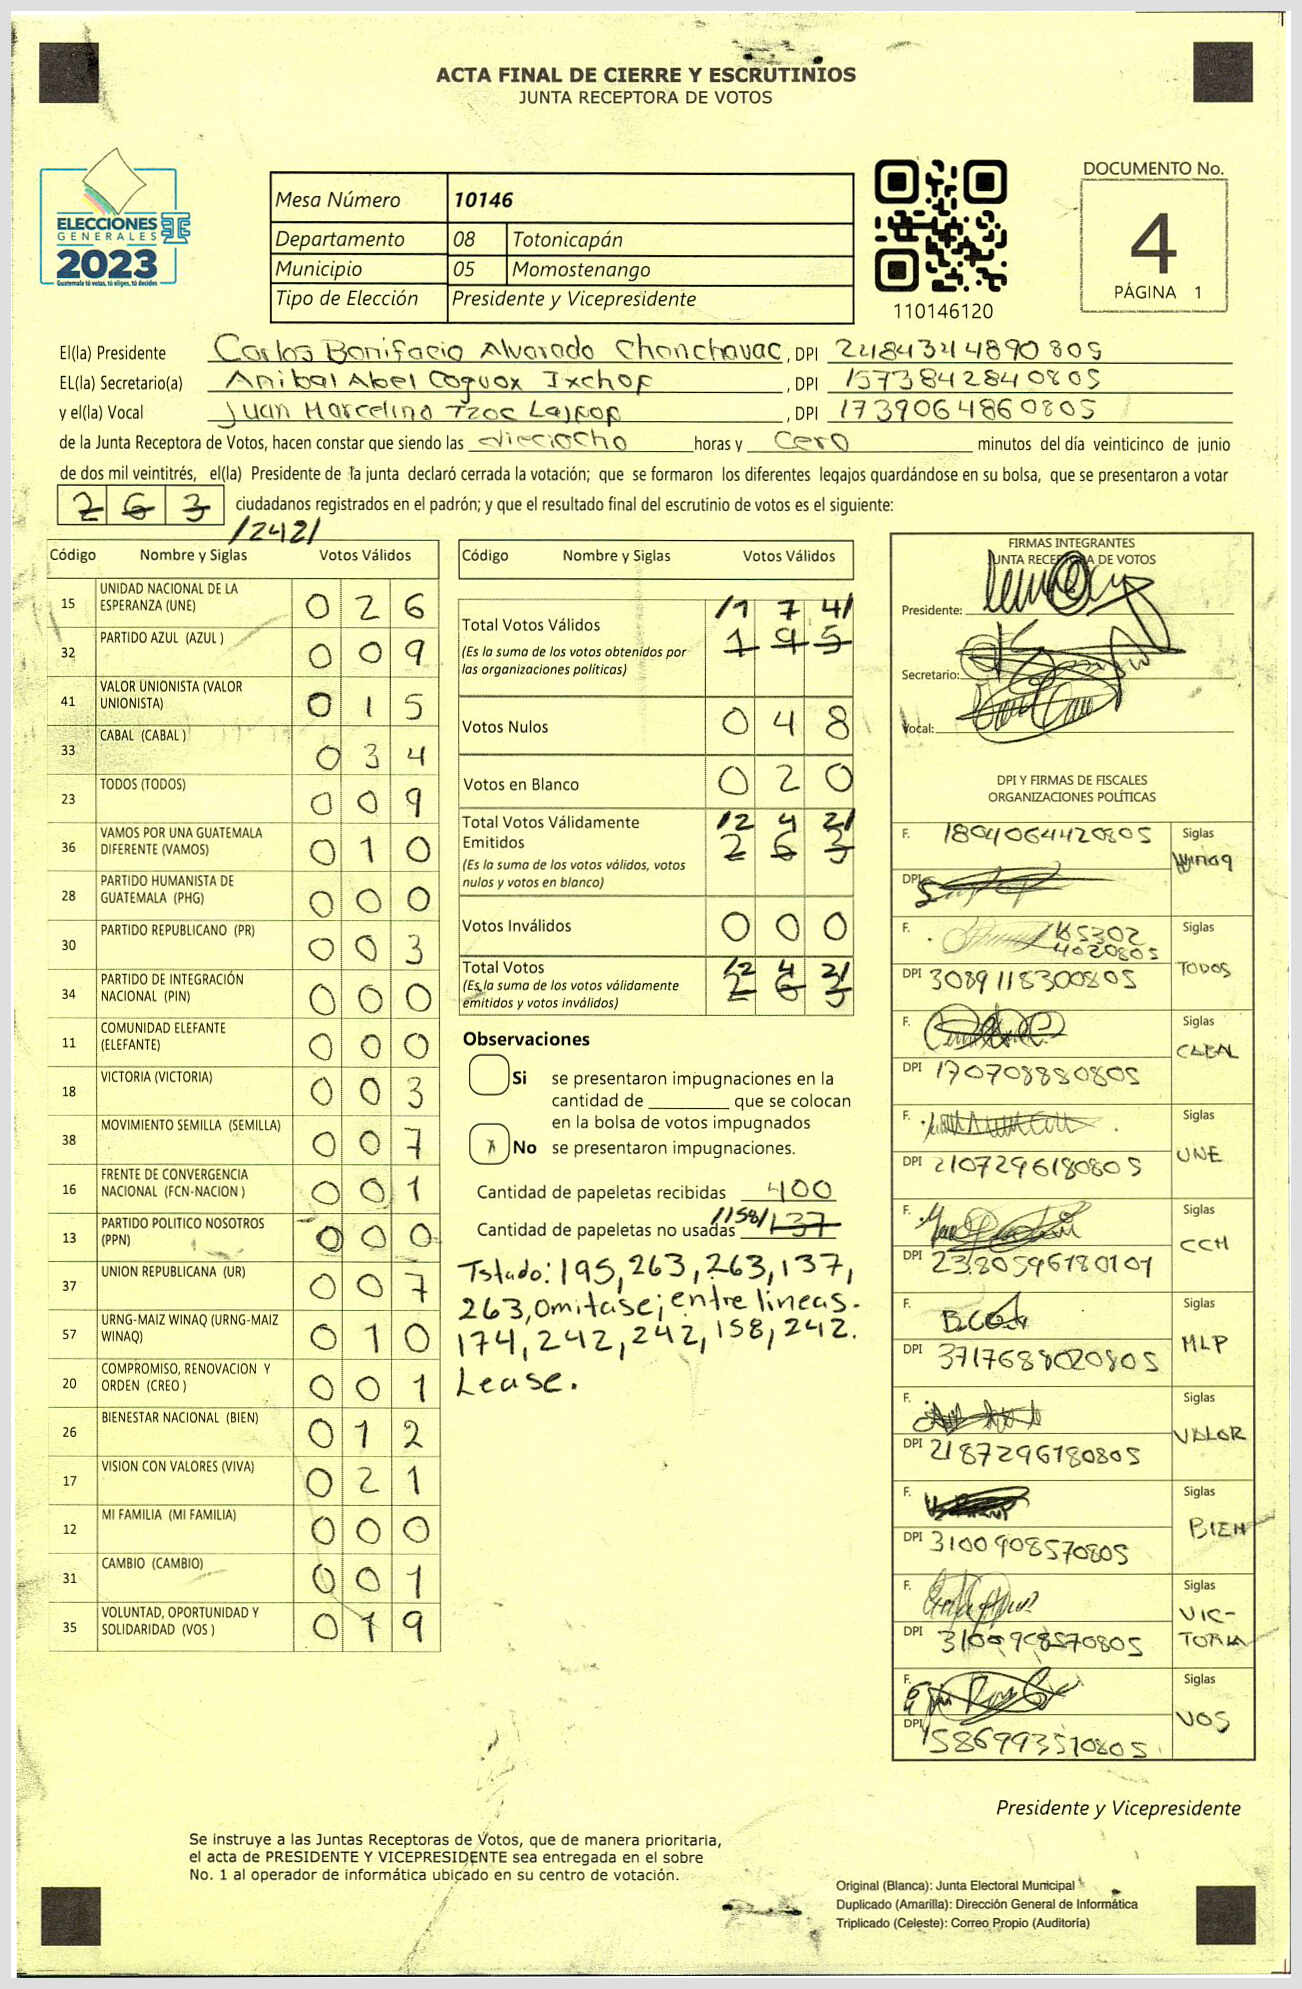 ACTA FINAL DE CIERRE Y ESCRUTINIOS
JUNTA RECEPTORA DE VOTOS
ELECCIONES
GENERALES
2023
Guatemala tú votas, tú eliges, tú decides
Mesa Número 10146
Departamento 08 Totonicapán
Municipio 05 Momostenango
Tipo de Elección Presidente y Vicepresidente
110146120
DOCUMENTO No.
4
PÁGINA 1
El(la) Presidente Carlos Bonifacio Alvarado Chanchavac, DPI 2484344890805
EL(la) Secretario(a) Anibal Abel Coguox Ixchop, DPI 1573842840805
y el(la) Vocal Juan Marcelino Tzoc Lajpop, DPI 1739064860805
de la Junta Receptora de Votos, hacen constar que siendo las dieciocho horas y cero minutos del día veinticinco de junio
de dos mil veintitrés, el(la) Presidente de la junta declaró cerrada la votación; que se formaron los diferentes legajos guardándose en su bolsa, que se presentaron a votar
263 ciudadanos registrados en el padrón; y que el resultado final del escrutinio de votos es el siguiente:
/242/
Código Nombre y Siglas Votos Válidos
15 UNIDAD NACIONAL DE LA ESPERANZA (UNE) 026
32 PARTIDO AZUL (AZUL ) 009
41 VALOR UNIONISTA (VALOR UNIONISTA) 015
33 CABAL (CABAL ) 034
23 TODOS (TODOS) 009
36 VAMOS POR UNA GUATEMALA DIFERENTE (VAMOS) 010
28 PARTIDO HUMANISTA DE GUATEMALA (PHG) 000
30 PARTIDO REPUBLICANO (PR) 003
34 PARTIDO DE INTEGRACIÓN NACIONAL (PIN) 000
11 COMUNIDAD ELEFANTE (ELEFANTE) 000
18 VICTORIA (VICTORIA) 003
38 MOVIMIENTO SEMILLA (SEMILLA) 007
16 FRENTE DE CONVERGENCIA NACIONAL (FCN-NACION ) 001
13 PARTIDO POLITICO NOSOTROS (PPN) 000
37 UNION REPUBLICANA (UR) 007
57 URNG-MAIZ WINAQ (URNG-MAIZ WINAQ) 010
20 COMPROMISO, RENOVACION Y ORDEN (CREO ) 001
26 BIENESTAR NACIONAL (BIEN) 012
17 VISION CON VALORES (VIVA) 021
12 MI FAMILIA (MI FAMILIA) 000
31 CAMBIO (CAMBIO) 001
35 VOLUNTAD, OPORTUNIDAD Y SOLIDARIDAD (VOS ) 019
Código Nombre y Siglas Votos Válidos
Total Votos Válidos /174/ 195
(Es la suma de los votos obtenidos por
las organizaciones políticas)
Votos Nulos 048
Votos en Blanco 020
Total Votos Válidamente
Emitidos /242/ 263
(Es la suma de los votos válidos, votos
nulos y votos en blanco)
Votos Inválidos 000
Total Votos /242/ 263
(Es la suma de los votos válidamente
emitidos y votos inválidos)
Observaciones
Si se presentaron impugnaciones en la
cantidad de ________ que se colocan
en la bolsa de votos impugnados
No se presentaron impugnaciones.
Cantidad de papeletas recibidas 400
Cantidad de papeletas no usadas /158/ 137
Tstado: 195, 263, 263, 137,
263, Omitase; entre lineas.
174, 242, 242, 158, 242.
Lease.
FIRMAS INTEGRANTES
JUNTA RECEPTORA DE VOTOS
Presidente:
Secretario:
Vocal:
DPI Y FIRMAS DE FISCALES
ORGANIZACIONES POLÍTICAS
F. 1804064420805 Siglas
DPI Winaq
F. 165302 4020805 Siglas
DPI 3089118300805 TODOS
F. Siglas
DPI 170708880805 CABAL
F. Siglas
DPI 2107296180805 UNE
F. Siglas
DPI 2380596180101 CCH
F. Siglas
DPI 3717688020805 MLP
F. Siglas
DPI 2187296180805 VALOR
F. Siglas
DPI 3100908570805 BIEN
F. Siglas
DPI 3100908570805 VIC-
TORIA
F. Siglas
DPI 1586993510805 VOS
Presidente y Vicepresidente
Se instruye a las Juntas Receptoras de Votos, que de manera prioritaria,
el acta de PRESIDENTE Y VICEPRESIDENTE sea entregada en el sobre
No. 1 al operador de informática ubicado en su centro de votación.
Original (Blanca): Junta Electoral Municipal
Duplicado (Amarilla): Dirección General de Informática
Triplicado (Celeste): Correo Propio (Auditoría)